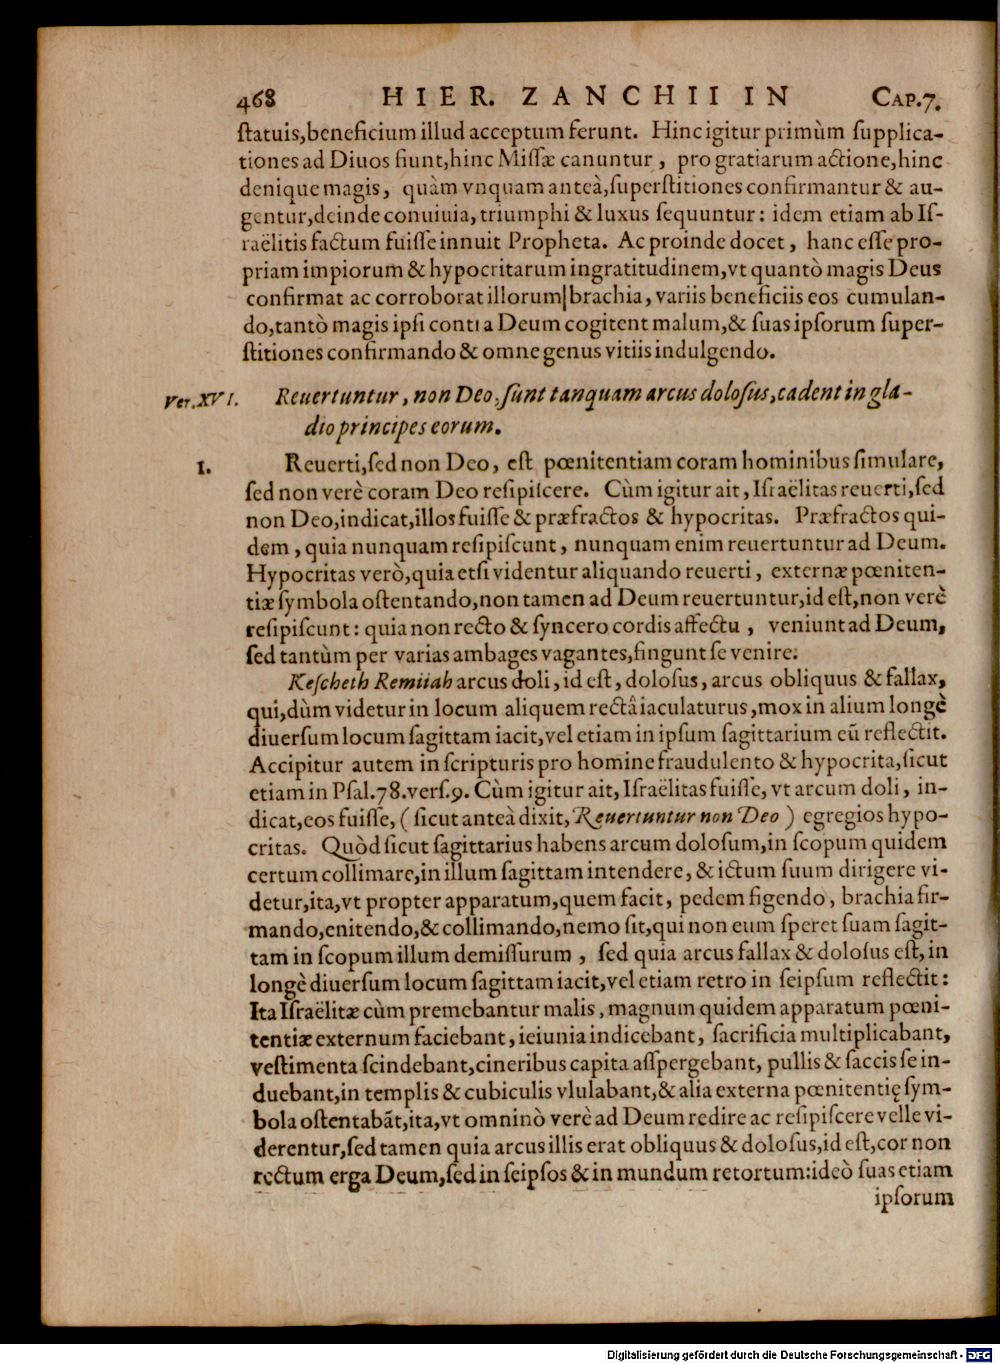 468 HIER. ZANCHII IN CAP.7.
ſtatuis,beneficium illud acceptum ferunt. Hinc igitur primùm ſupplica-
tiones ad Diuos fiunt,hinc Miſſæ canuntur, pro gratiarum actione,hinc
denique magis, quàm vnquam anteà,ſuperſtitiones confirmantur & au-
gentur,deinde conuiuia, triumphi & luxus ſequuntur: idem etiam ab Iſ-
raëlitis factum fuiſſe innuit Propheta. Ac proinde docet, hanc eſſe pro-
priam impiorum & hypocritarum ingratitudinem,vt quantò magis Deus
confirmat ac corroborat illorum|brachia, variis beneficiis eos cumulan-
do,tantò magis ipſi conti a Deum cogitent malum,& ſuas ipſorum ſuper-
ſtitiones confirmando & omne genus vitiis indulgendo.
Ver.XVI. Reuertuntur, non Deo, ſunt tanquam arcus doloſus,cadent in gla-
dio principes eorum.
1. Reuerti,ſed non Deo, eſt pœnitentiam coram hominibus ſimulare,
ſed non verè coram Deo reſipiſcere. Cùm igitur ait, Iſraëlitas reuerti,ſed
non Deo,indicat,illos fuiſſe & præfractos & hypocritas. Præfractos qui-
dem, quia nunquam reſipiſcunt, nunquam enim reuertuntur ad Deum.
Hypocritas verò,quia etſi videntur aliquando reuerti, externæ pœniten-
tiæ ſymbola oſtentando,non tamen ad Deum reuertuntur,id eſt,non verè
reſipiſcunt: quia non recto & ſyncero cordis affectu, veniunt ad Deum,
ſed tantùm per varias ambages vagantes,fingunt ſe venire.
Keſcheth Remiiah arcus doli, id eſt, doloſus, arcus obliquus & fallax,
qui,dùm videtur in locum aliquem rectâ iaculaturus,mox in alium longè
diuerſum locum ſagittam iacit,vel etiam in ipſum ſagittarium eū reflectit.
Accipitur autem in ſcripturis pro homine fraudulento & hypocrita,ſicut
etiam in Pſal.78.verſ.9. Cùm igitur ait, Iſraëlitas fuiſſe, vt arcum doli, in-
dicat,eos fuiſſe, ( ſicut anteà dixit, Reuertuntur non Deo ) egregios hypo-
critas. Quòd ſicut ſagittarius habens arcum doloſum,in ſcopum quidem
certum collimare,in illum ſagittam intendere, & ictum ſuum dirigere vi-
detur,ita,vt propter apparatum,quem facit, pedem figendo, brachia fir-
mando,enitendo,& collimando,nemo ſit,qui non eum ſperet ſuam ſagit-
tam in ſcopum illum demiſſurum, ſed quia arcus fallax & doloſus eſt, in
longè diuerſum locum ſagittam iacit,vel etiam retro in ſeipſum reflectit:
Ita Iſraëlitæ cùm premebantur malis, magnum quidem apparatum pœni-
tentiæ externum faciebant, ieiunia indicebant, ſacrificia multiplicabant,
veſtimenta ſcindebant,cineribus capita aſpergebant, pullis & ſaccis ſe in-
duebant,in templis & cubiculis vlulabant,& alia externa pœnitentię ſym-
bola oſtentabāt,ita,vt omninò verè ad Deum redire ac reſipiſcere velle vi-
derentur,ſed tamen quia arcus illis erat obliquus & doloſus,id eſt,cor non
rectum erga Deum,ſed in ſeipſos & in mundum retortum:ideò ſuas etiam
ipſorum
Digitalisierung gefördert durch die Deutsche Forschungsgemeinschaft - DFG